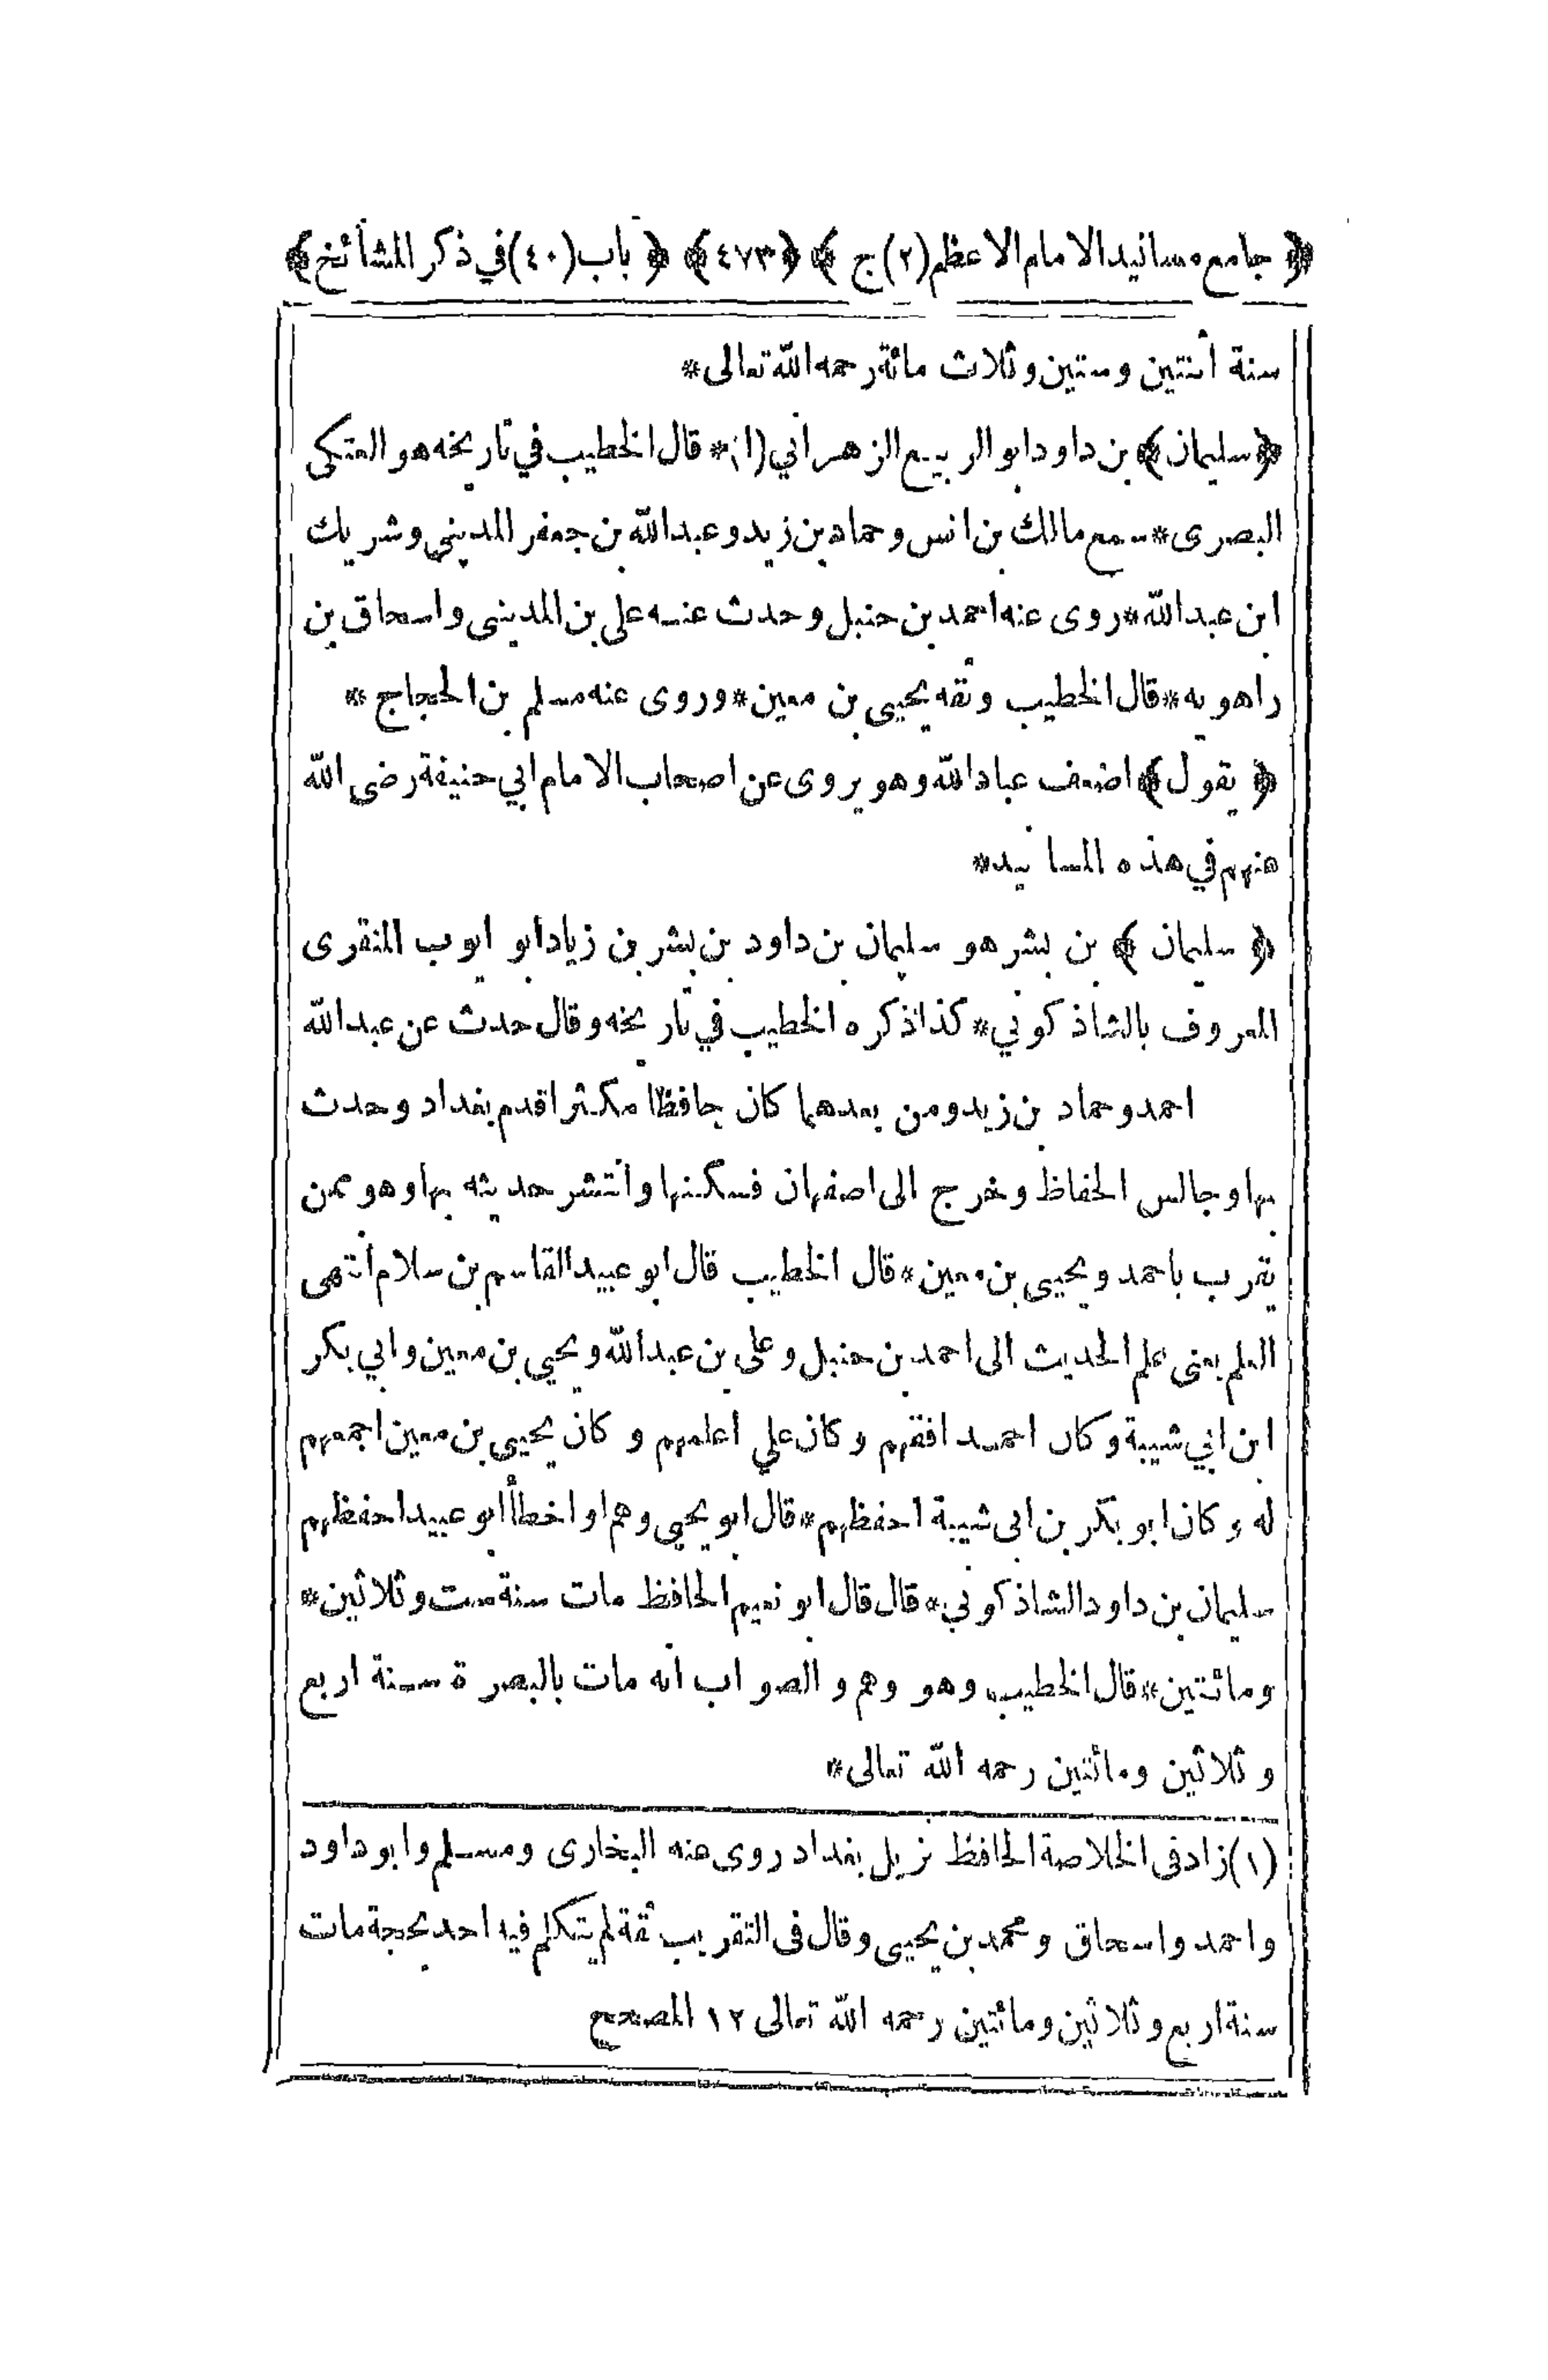 ﴿ جامع مسانيد الامام الاعظم (٢) ج ﴾ ﴿٤٧٣﴾ ﴿ باب (٤٠) في ذكر المشائخ ﴾
سنة أثنتين وستين وثلاث مائة رحمه الله تعالى*
﴿سليمان﴾ بن داود ابو الربيع الزهراني (١)* قال الخطيب في تاريخه هو العتكى
البصرى* سمع مالك بن انس وحماد بن زيد وعبد الله بن جعفر المديني وشريك
ابن عبد الله* روى عنه احمد بن حنبل وحدث عنه علي بن المديني واسحاق بن
راهويه* قال الخطيب وثقه يحيى بن معين* وروى عنه مسلم بن الحجاج *
﴿ يقول ﴾ اضعف عباد الله وهو يروى عن اصحاب الامام ابي حنيفة رضى الله
عنهم في هذه المسانيد*
﴿ سليمان ﴾ بن بشر هو سليمان بن داود بن بشر بن زياد ابو ايوب المنقرى
المعروف بالشاذكوني* كذا ذكره الخطيب في تاريخه وقال حدث عن عبد الله
احمد وحماد بن زيد ومن بعدهما كان حافظا مكثرا قدم بغداد وحدث
بها وجالس الحفاظ وخرج الى اصفهان فسكنها وانتشر حديثه بها وهو ممن
يقرب باحمد ويحيى بن معين* قال الخطيب قال ابو عبيد القاسم بن سلام أنتهى
العلم يعنى علم الحديث الى احمد بن حنبل وعلى بن عبد الله ويحيى بن معين وابي بكر
ابن ابي شيبة وكان احمد افقههم وكان علي اعلمهم وكان يحيى بن معين اجمعهم
له وكان ابو بكر بن ابى شيبة احفظهم* قال ابو يحيى وهم او اخطأ ابو عبيد احفظهم
سليمان بن داود الشاذكوني* قال قال ابو نعيم الحافظ مات سنة ست وثلاثين*
ومائتين* قال الخطيب وهو وهم والصواب انه مات بالبصرة سنة اربع
وثلاثين ومائتين رحمه الله تعالى*
(١) زاد فى الخلاصة الحافظ نزيل بغداد روى عنه البخارى ومسلم وابو داود
واحمد واسحاق ومحمد بن يحيى وقال فى التقريب ثقة لم يتكلم فيه احد بحجة مات
سنة اربع وثلاثين ومائتين رحمه الله تعالى ١٢ المصحح